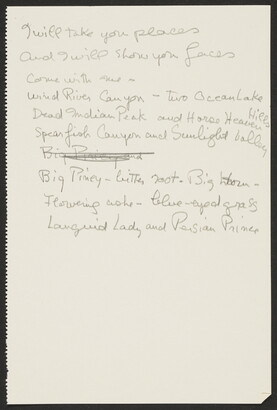 I will take you places
And I will show you faces
Come with me ~
Wind River Canyon - Two Ocean Lake
Dead Indian Peak and Horse Heaven Hills
Spearfish Canyon and Sunlight Valley
Big Piney - bitter root - Big Horn -
Flowering ache - blue-eyed grass
Languid Lady and Persian Prince